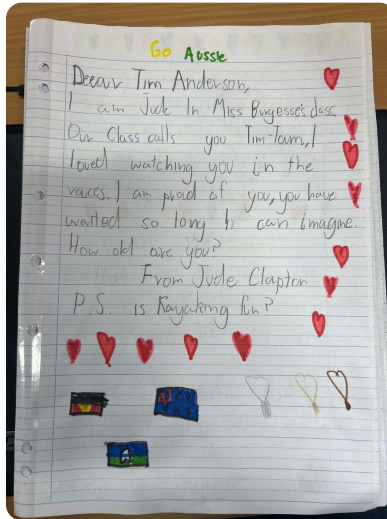 Go Aussie
Deear Tim Anderson,
I am Jude In Miss Burgesse's class
Our Class calls you Tim-Tam, I
loved watching you in the
races. I am proud of you, you have
waited so long I can imagine.
How old are you?
From Jude Clapton
P.S. is Kayaking fun?